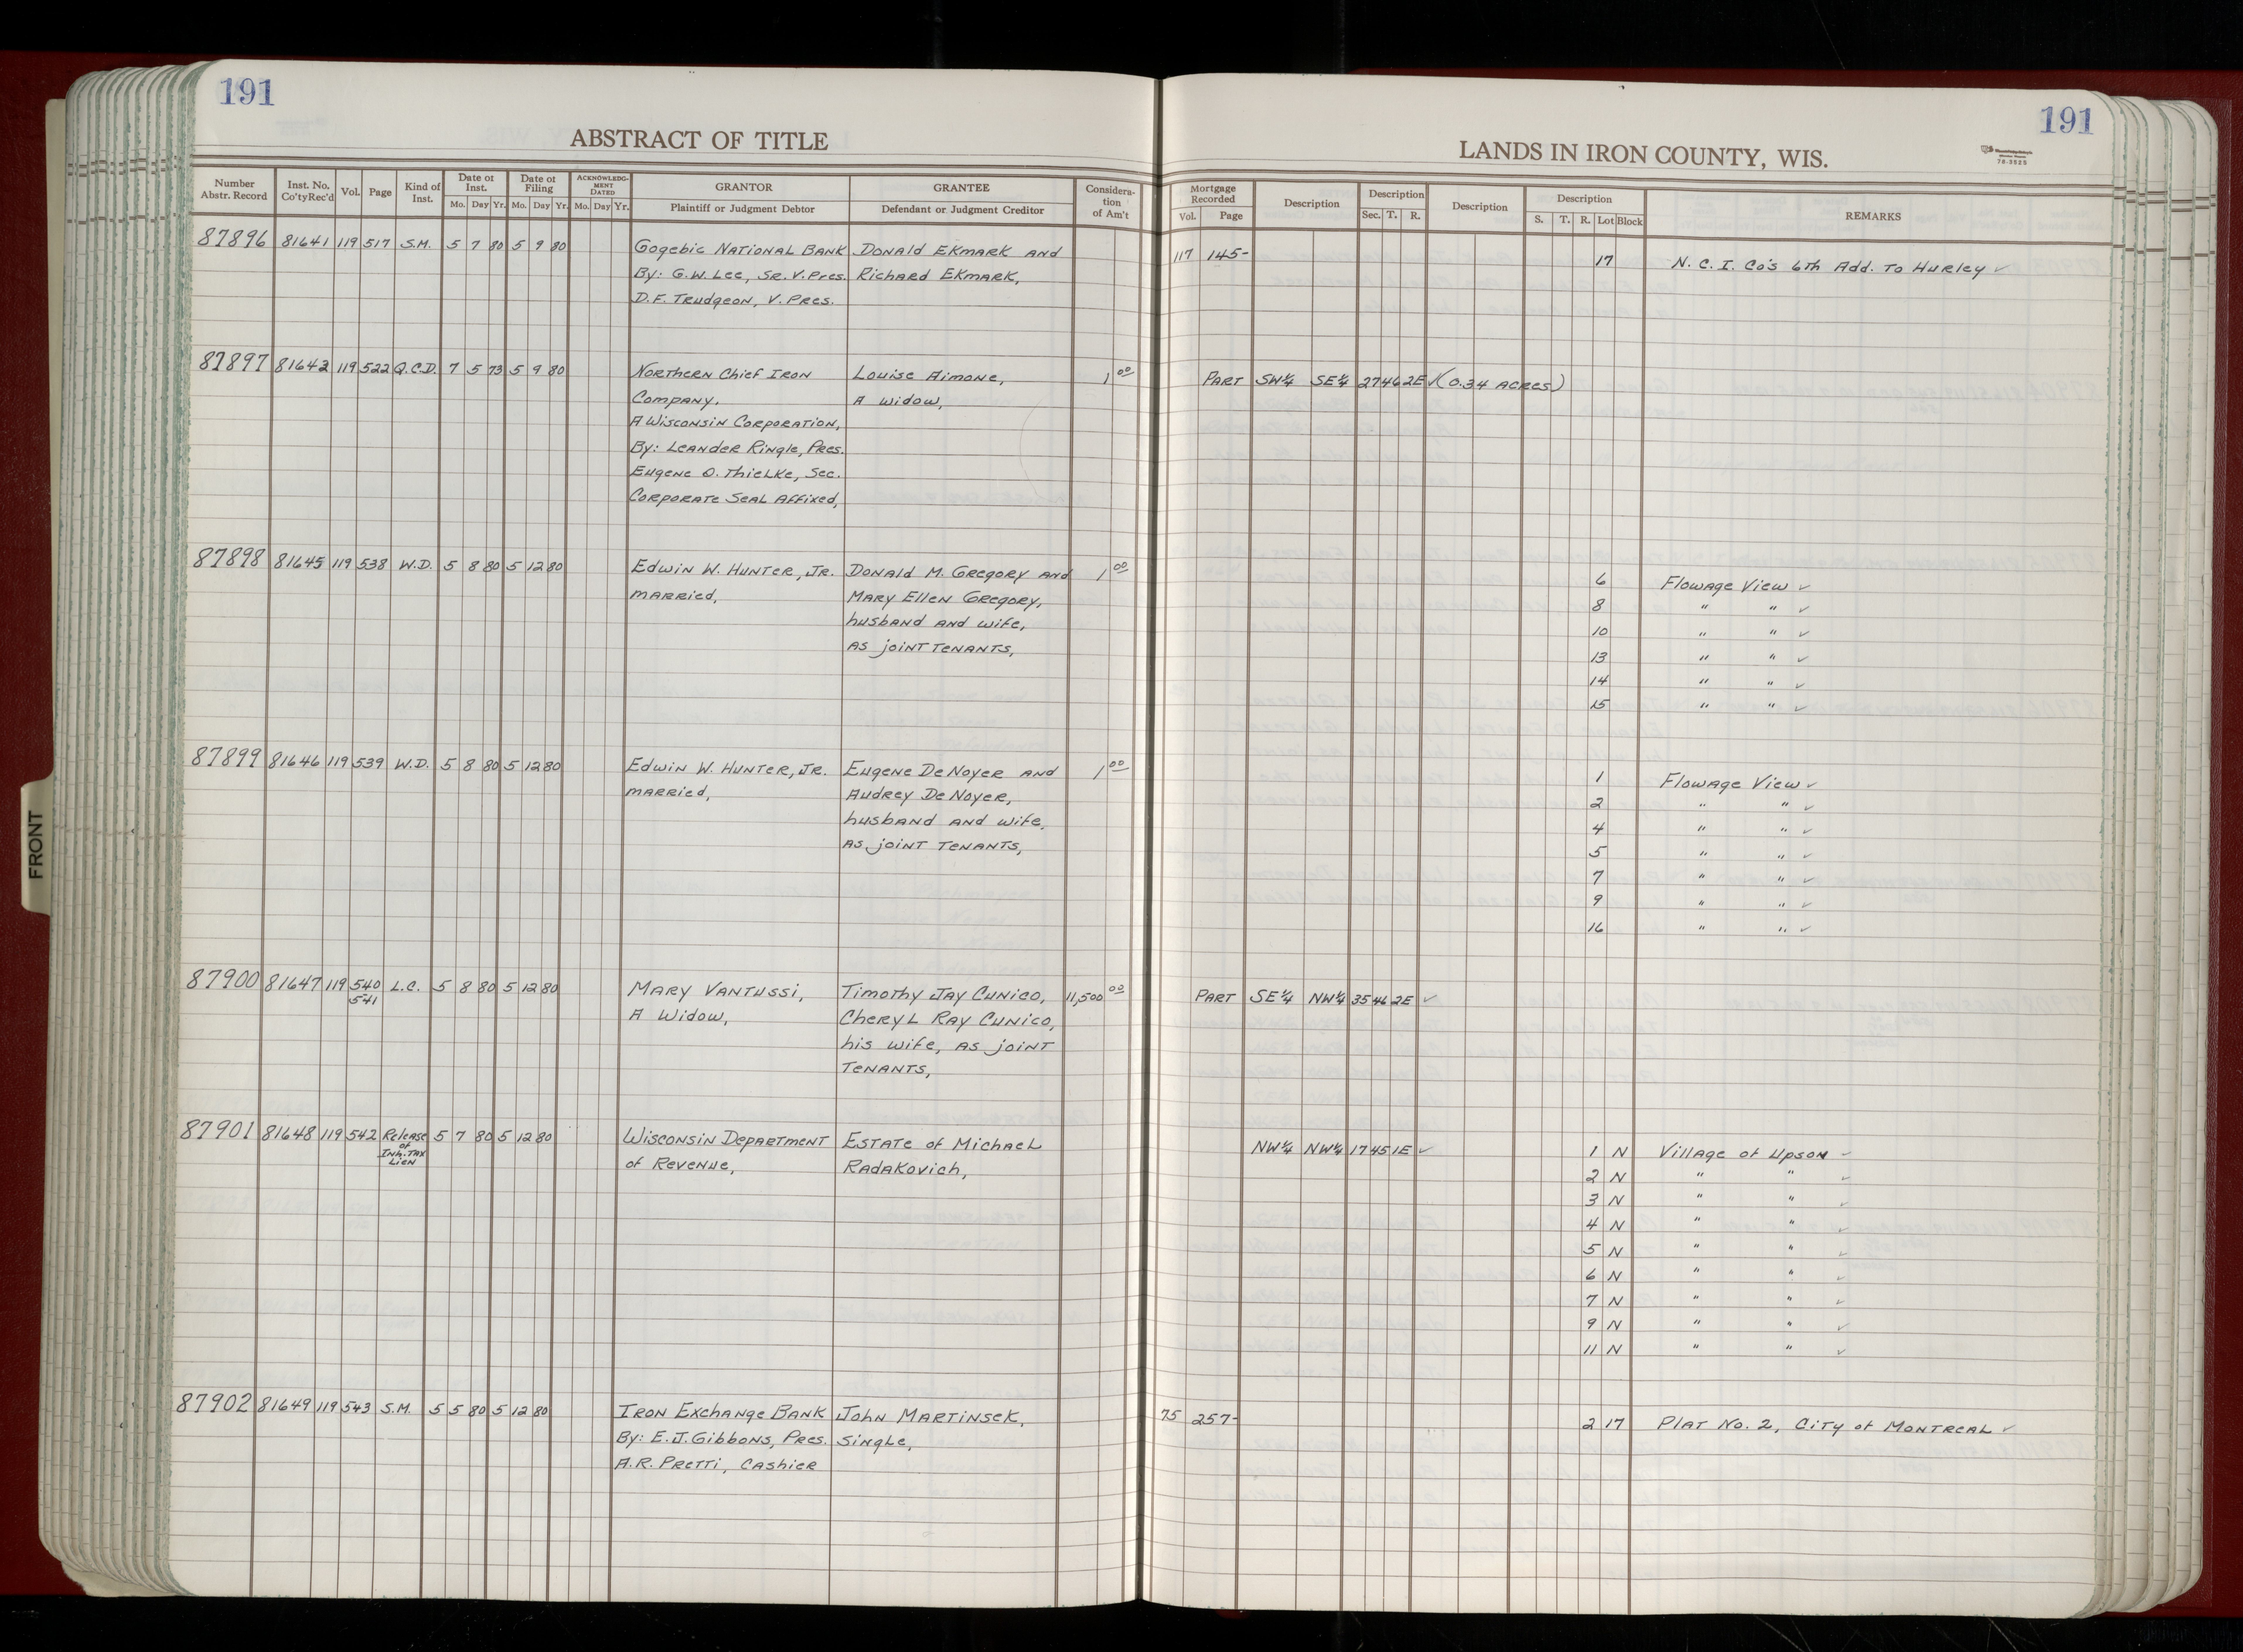 191
191
ABSTRACT OF TITLE
LANDS IN IRON COUNTY, WIS.
78-3525
Number Abstr. Record
Inst. No. Co'ty Rec'd
Vol.
Page
Kind of Inst.
Date of Inst.
Mo. Day Yr.
Date of Filing
Mo. Day Yr.
ACKNOWLEDGMENT DATED
Mo. Day Yr.
GRANTOR
Plaintiff or Judgment Debtor
GRANTEE
Defendant or Judgment Creditor
Consideration of Am't
Mortgage Recorded
Vol. Page
Description
Description
Sec. T. R.
Description
Description
S. T. R. Lot Block
REMARKS
87896 81641 119 517 S.M. 5 7 80 5 9 80 Gogebic National Bank Donald Ekmark and 117 145- 17 N.C.I. Co's 6th Add. To Hurley ✓
By: G.W. Lee, Sr. V. Pres. Richard Ekmark,
D.F. Trudgeon, V. Pres.
87897 81642 119 522 Q.C.D. 7 5 73 5 9 80 Northern Chief Iron Louise Aimone, 1 00 Part SW¼ SE¼ 27 46 2E ✓ (0.34 Acres)
Company, A Widow,
A Wisconsin Corporation,
By: Leander Ringle, Pres.
Eugene O. Thielke, Sec.
Corporate Seal Affixed,
87898 81645 119 538 W.D. 5 8 80 5 12 80 Edwin W. Hunter, Jr. Donald M. Gregory and 1 00 6 Flowage View ✓
married, Mary Ellen Gregory, 8 " " ✓
husband and wife, 10 " " ✓
as joint tenants, 13 " " ✓
14 " " ✓
15 " " ✓
87899 81646 119 539 W.D. 5 8 80 5 12 80 Edwin W. Hunter, Jr. Eugene DeNoyer and 1 00 1 Flowage View ✓
married, Audrey DeNoyer, 2 " " ✓
husband and wife, 4 " " ✓
as joint tenants, 5 " " ✓
7 " " ✓
9 " " ✓
16 " " ✓
87900 81647 119 540 L.C. 5 8 80 5 12 80 Mary Vantussi, Timothy Jay Cunico, 11,500 00 Part SE¼ NW¼ 35 46 2E ✓
541 A Widow, Cheryl Ray Cunico,
his wife, as joint
tenants,
87901 81648 119 542 Release 5 7 80 5 12 80 Wisconsin Department Estate of Michael NW¼ NW¼ 17 45 1E ✓ 1 N Village of Upson ✓
of Inh. Tax Lien of Revenue, Radakovich, 2 N " " ✓
3 N " " ✓
4 N " " ✓
5 N " " ✓
6 N " " ✓
7 N " " ✓
9 N " " ✓
11 N " " ✓
87902 81649 119 543 S.M. 5 5 80 5 12 80 Iron Exchange Bank John Martinsek, 75 257- 2 17 Plat No. 2, City of Montreal ✓
By: E.J. Gibbons, Pres. Single,
A.R. Pretti, Cashier
FRONT